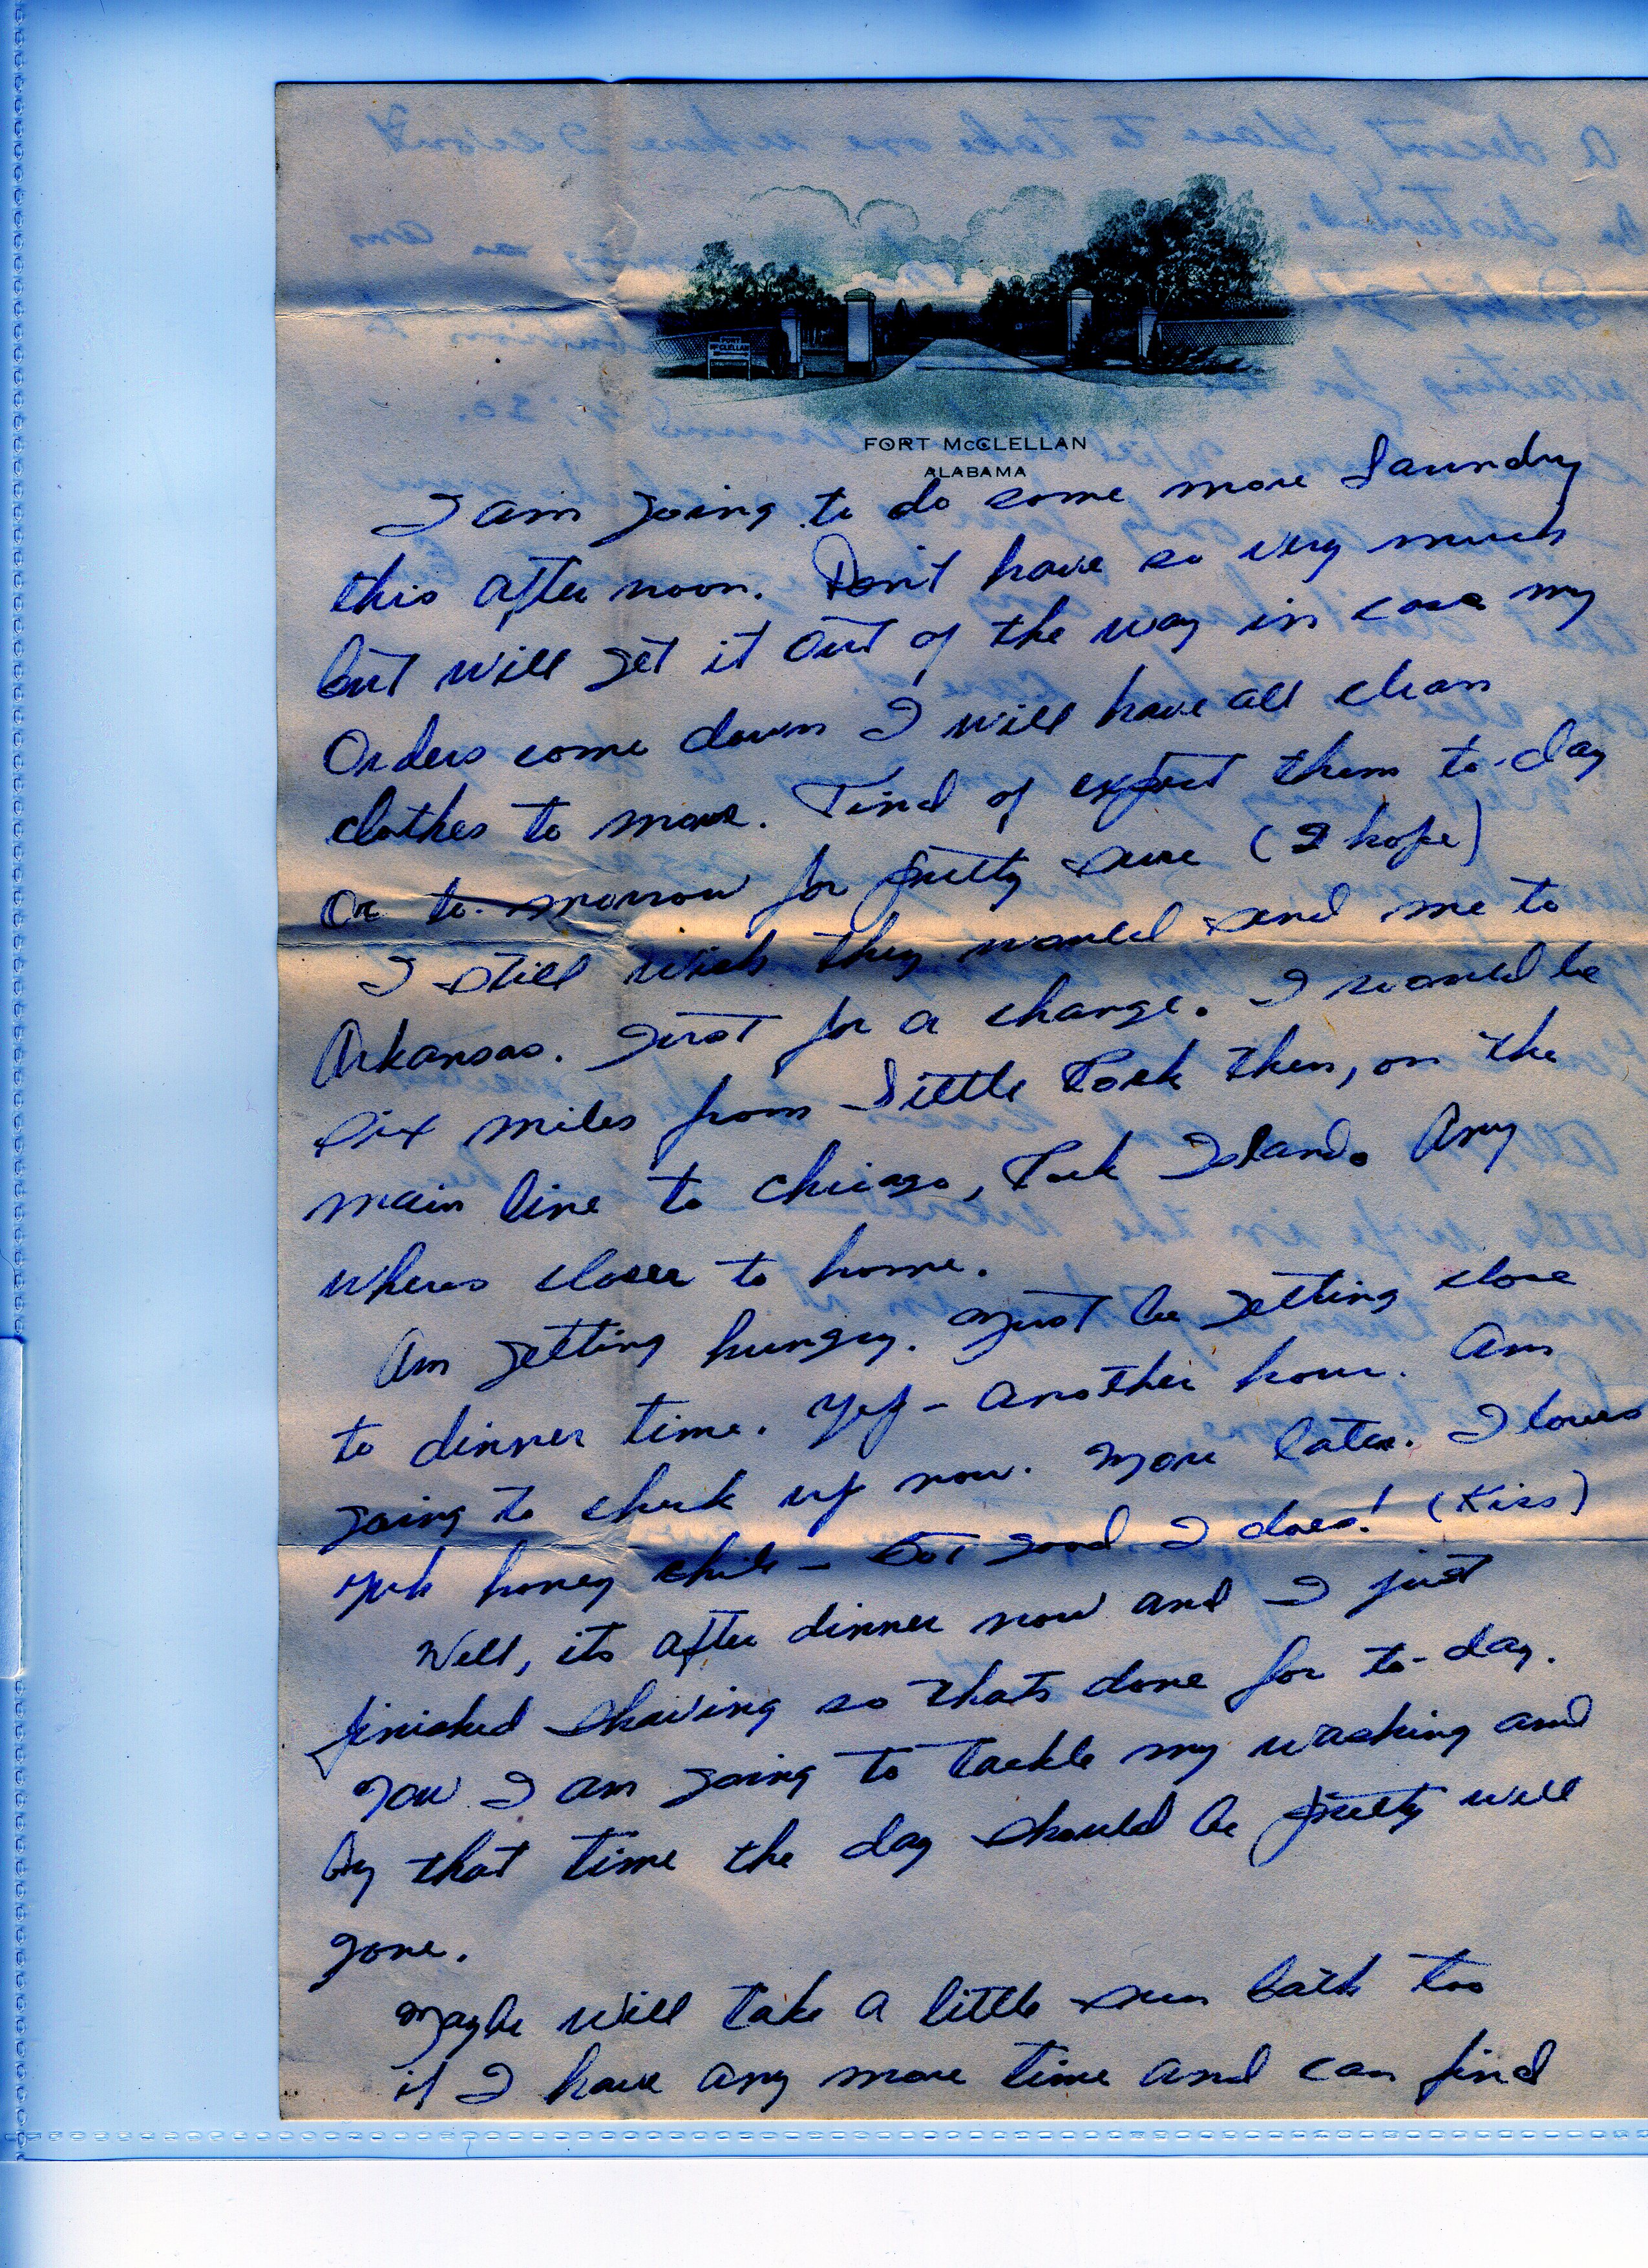 FORT McCLELLAN
FORT McCLELLAN
ALABAMA
I am going to do some more laundry
this after noon. Don't have so very much
but will get it out of the way in case my
Orders come down I will have all clean
clothes to move. Kind of expect them to-day
Or to-morrow for pretty sure (I hope)
I still wish they would send me to
Arkansas. Just for a change. I would be
six miles from Little Rock then, on the
main line to Chicago, Rock Island. Any
wheres closer to home.
Am getting hungry. Must be getting close
to dinner time. Yep - another hour. Am
going to check up now. More later. I loves
yuh honey chile - Got good I does! (Kiss)
Well, its after dinner now and I just
finished shaving so thats done for to-day.
Now I am going to tackle my washing and
by that time the day should be pretty well
gone.
Maybe will take a little sun bath too
if I have any more time and can find